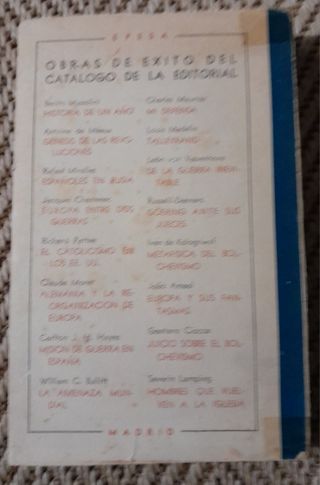 EPESA
OBRAS DE EXITO DEL
CATALOGO DE LA EDITORIAL
Benito Mussolini
HISTORIA DE UN AÑO
Antoine de
GENIOS DE LAS REVO-
LUCIONES
Rafael Miralles
ESPAÑOLES EN RUSIA
Jacques Chastenet
EUROPA ENTRE DOS
GUERRAS
Richard Pattee
EL CATOLICISMO EN
LOS EE. UU.
Claude Moret
ALEMANIA Y LA RE-
ORGANIZACION DE
EUROPA
Carlton J. H. Hayes
MISION DE GUERRA EN
ESPAÑA
William C. Bullitt
LA AMENAZA MUN-
DIAL
Charles Maurras
MI DEFENSA
Louis Madelin
TALLEYRAND
León van
DE LA GUERRA INEVI-
TABLE
Russell
GOERING ANTE SUS
JUECES
Ivan de Kologriwof
METAFISICA DEL BOL-
CHEVISMO
Julio
EUROPA Y SUS FAN-
TASMAS
Gaetano
JUICIO SOBRE EL BOL-
CHEVISMO
Severin Lamping
HOMBRES QUE VUEL-
VEN A LA IGLESIA
MADRID